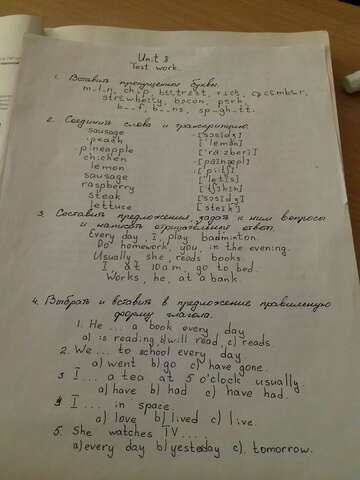 Unit 8
Test work.
1. Вставить пропущенные буквы.
m_l_n, ch_p, beetroot, rich, cucumber,
strawberry, bacon, pork,
b__f, b__ns, sp_gh_tt.
2. Соединить слово и транскрипцию.
sausage ['sɔsidʒ]
peach ['lemən]
pineapple ['ra:zbəri]
chicken ['painæpl]
lemon [pi:tʃ]
sausage ['letis]
raspberry ['tʃikin]
steak ['sɔsidʒ]
lettuce [steik]
3. Составить предложения, задать к ним вопросы
и написать отрицательный ответ.
Every day, I, play badminton.
Do homework, you, in the evening.
Usually, she, reads books.
I, at 10 a.m, go to bed.
Works, he, at a bank.
4. Выбрать и вставить в предложение правильную
форму глагола.
1. He ... a book every day
a) is reading, b) will read, c) reads.
2. We ... to school every day.
a) went b) go c) have gone.
3 I ... a tea at 5 o'clock usually
a) have b) had c) have had.
4 I ... in space.
a) love b) lived c) live.
5. She watches TV ... .
a) every day b) yesteday c). tomorrow.